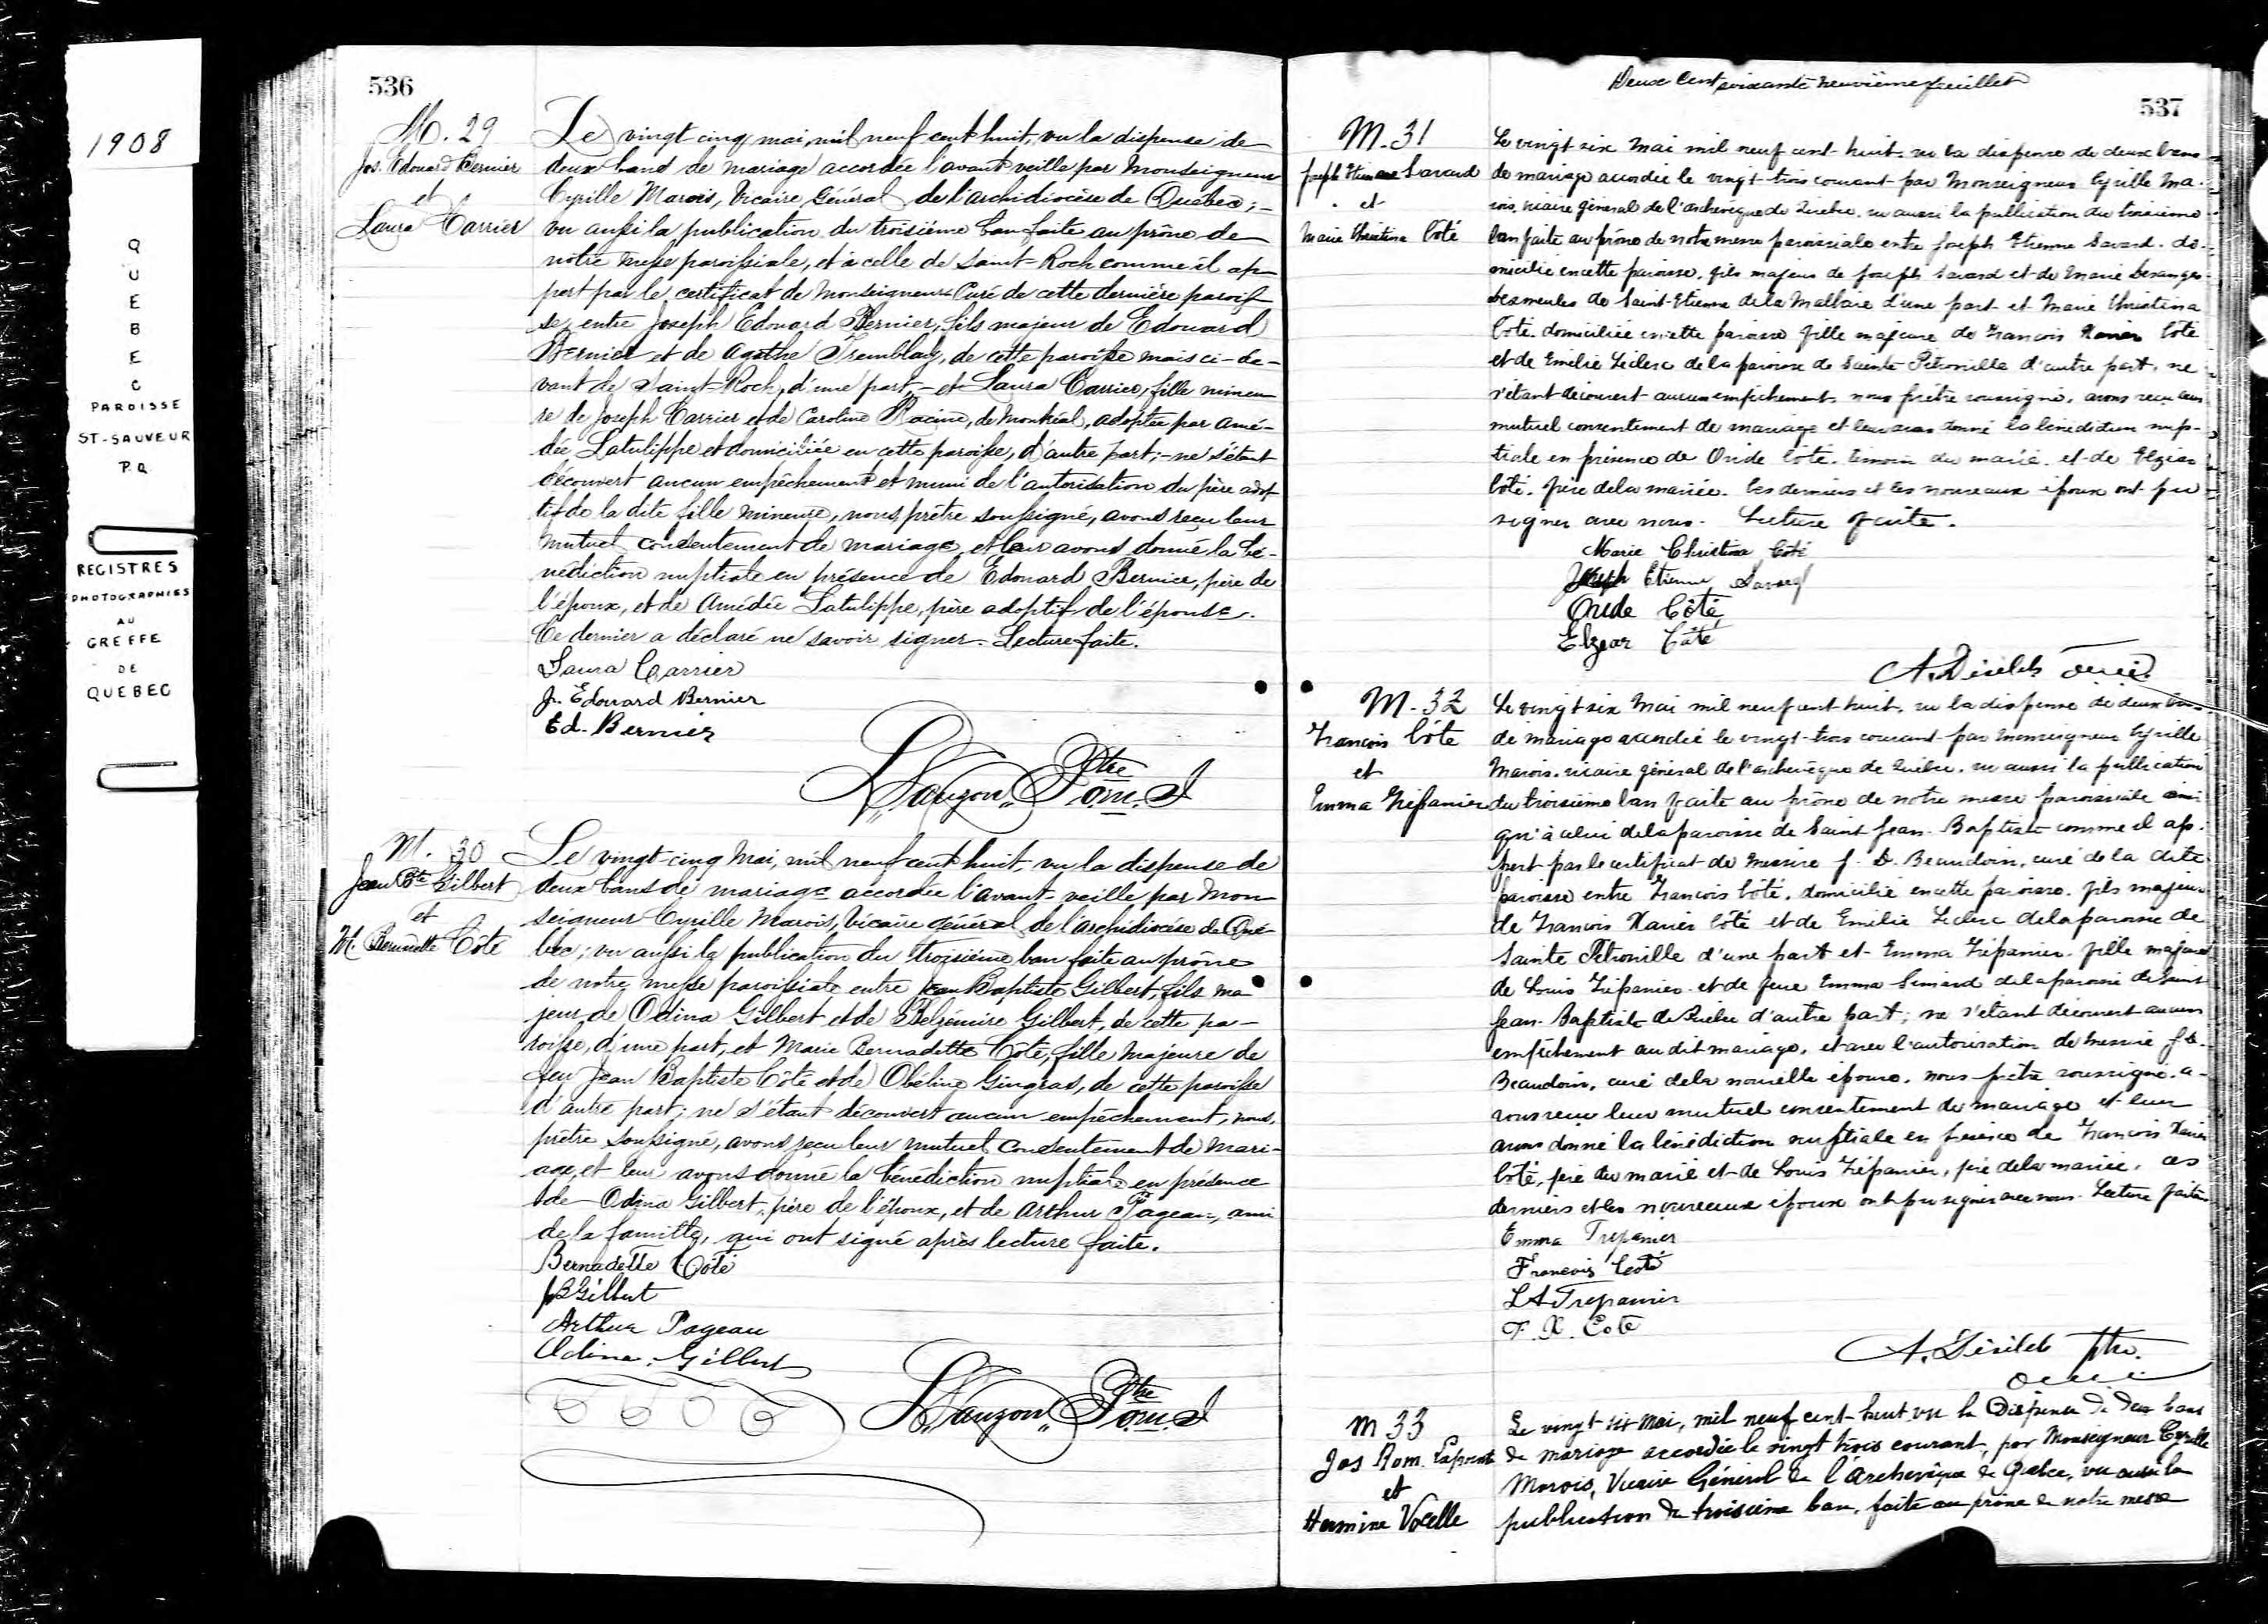 1908
QUEBEC
PAROISSE
ST-SAUVEUR
P.Q
REGISTRES
PHOTOGRAPHIES
AU
GREFFE
DE
QUEBEC
536
M. 29
Jos. Edouard Bernier
et
Laura Carrier
Le vingt cinq mai, mil neuf cent huit, vu la dispense de
deux bans de mariage accordée l'avant veille par Monseigneur
Cyrille Marois, Vicaire Général de l'archidiocèse de Québec;-
vu aussi la publication du troisième ban faite au prône de
notre messe paroissiale, et à celle de Saint-Roch comme il ap
pert par le certificat de Monseigneur Curé de cette dernière parois
se, entre Joseph Edouard Bernier, fils majeur de Edouard
Bernier et de Agathe Tremblay, de cette paroisse mais ci-de-
vant de Saint-Roch, d'une part,- et Laura Carrier, fille mineu
re de Joseph Carrier et de Caroline Racine, de Montréal, adoptée par Amé-
dée Latulippe et domiciliée en cette paroisse, d'autre part;- ne s'étant
découvert aucun empêchement et muni de l'autorisation du père adop
tif de la dite fille mineure, nous, prêtre soussigné, avons reçu leur
mutuel consentement de mariage et leur avons donné la bé-
nédiction nuptiale en présence de Edouard Bernier, père de
l'époux, et de Amédée Latulippe, père adoptif de l'épouse.
Ce dernier a déclaré ne savoir signer. Lecture faite.
Laura Carrier
J. Edouard Bernier
Ed. Bernier
Lauzon Ptre O.M.I
M. 30
Jean Bte Gilbert
et
M. Bernadette Côté
Le vingt-cinq Mai, mil neuf cent huit, vu la dispense de
deux bans de mariage accordée l'avant-veille par Mon
seigneur Cyrille Marois, Vicaire Général de l'archidiocèse de Qué-
bec; vu aussi la publication du troisième ban faite au prône
de notre messe paroissiale entre Jean Baptiste Gilbert, fils ma
jeur de Odina Gilbert et de Belzémire Gilbert, de cette pa-
roisse, d'une part, et Marie Bernadette Côté, fille majeure de
feu Jean Baptiste Côté et de Obéline Gingras, de cette paroisse
d'autre part; ne s'étant découvert aucun empêchement, nous,
prêtre soussigné, avons reçu leur mutuel consentement de mari-
age, et leur avons donné la bénédiction nuptiale en présence
de Odina Gilbert, père de l'époux, et de Arthur Pageau, ami
de la famille, qui ont signé après lecture faite.
Bernadette Côté
JB Gilbert
Arthur Pageau
Odina Gilbert
Lauzon Ptre O.M.I
Deux Cent soixante neuvième feuillet
537
M. 31
Joseph Etienne Savard
et
Marie Christina Côté
Le vingt six mai mil neuf cent huit, vu la dispense de deux bans
de mariage accordée le vingt-trois courant par Monseigneur Cyrille Ma-
rois, vicaire général de l'archevêque de Québec, vu aussi la publication du troisième
ban faite au prône de notre messe paroissiale entre Joseph Etienne Savard, do-
micilié en cette paroisse, fils majeur de Joseph Savard et de Marie Desanges
Desmeules de Saint-Etienne de la Malbaie d'une part et Marie Christina
Côté, domiciliée en cette paroisse fille majeure de François Xavier Côté
et de Emélie Leclerc de la paroisse de Sainte Pétronille d'autre part, ne
s'étant découvert aucun empêchement, nous prêtre soussigné, avons reçu leur
mutuel consentement de mariage et leur avons donné la bénédiction nup-
tiale en présence de Ovide Côté, témoin du marié et de Elzéar
Côté, frère de la mariée. Ces derniers et les nouveaux époux ont pu
signer avec nous. Lecture faite.
Marie Christina Coté
Joseph Etienne Savard
Ovide Côté
Elzear Côté
A. Désilets o.m.i.
M. 32
François Côté
et
Emma Trépanier
Le vingt six Mai mil neuf cent huit, vu la dispense de deux bans
de mariage accordée le vingt-trois courant par Monseigneur Cyrille
Marois, vicaire général de l'archevêque de Québec, vu aussi la publication
du troisième ban faite au prône de notre messe paroissiale ainsi
qu'à celui de la paroisse de Saint Jean-Baptiste comme il ap-
pert par le certificat de Messire J. D. Beaudoin, curé de la dite
paroisse entre François Côté, domicilié en cette paroisse, fils majeur
de François Xavier Côté et de Emélie Leclerc de la paroisse de
Sainte Pétronille d'une part et Emma Trépanier, fille majeure
de Louis Trépanier et de feue Emma Simard de la paroisse de Saint
Jean-Baptiste de Québec d'autre part; ne s'étant découvert aucun
empêchement au dit mariage, et avec l'autorisation de Messire J. D.
Beaudoin, curé de la nouvelle épouse, nous prêtre soussigné, a-
vons reçu leur mutuel consentement de mariage et leur
avons donné la bénédiction nuptiale en présence de François Xavier
Côté, père du marié et de Louis Trépanier, père de la mariée, ces
derniers et les nouveaux époux ont pu signer avec nous. Lecture faite
Emma Trepanier
Francois Coté
L A Trepanier
F. X. Coté
A. Désilets ptre.
o.m.i.
M 33
Jos Rom. Lapointe
et
Hermine Vocelle
Le vingt six mai, mil neuf cent huit, vu la Dispense de deux bans
de mariage accordée le vingt trois courant, par Monseigneur Cyrille
Marois, Vicaire Général de l'Archevêque de Québec, vu aussi la
publication du troisième ban, faite au prône de notre messe